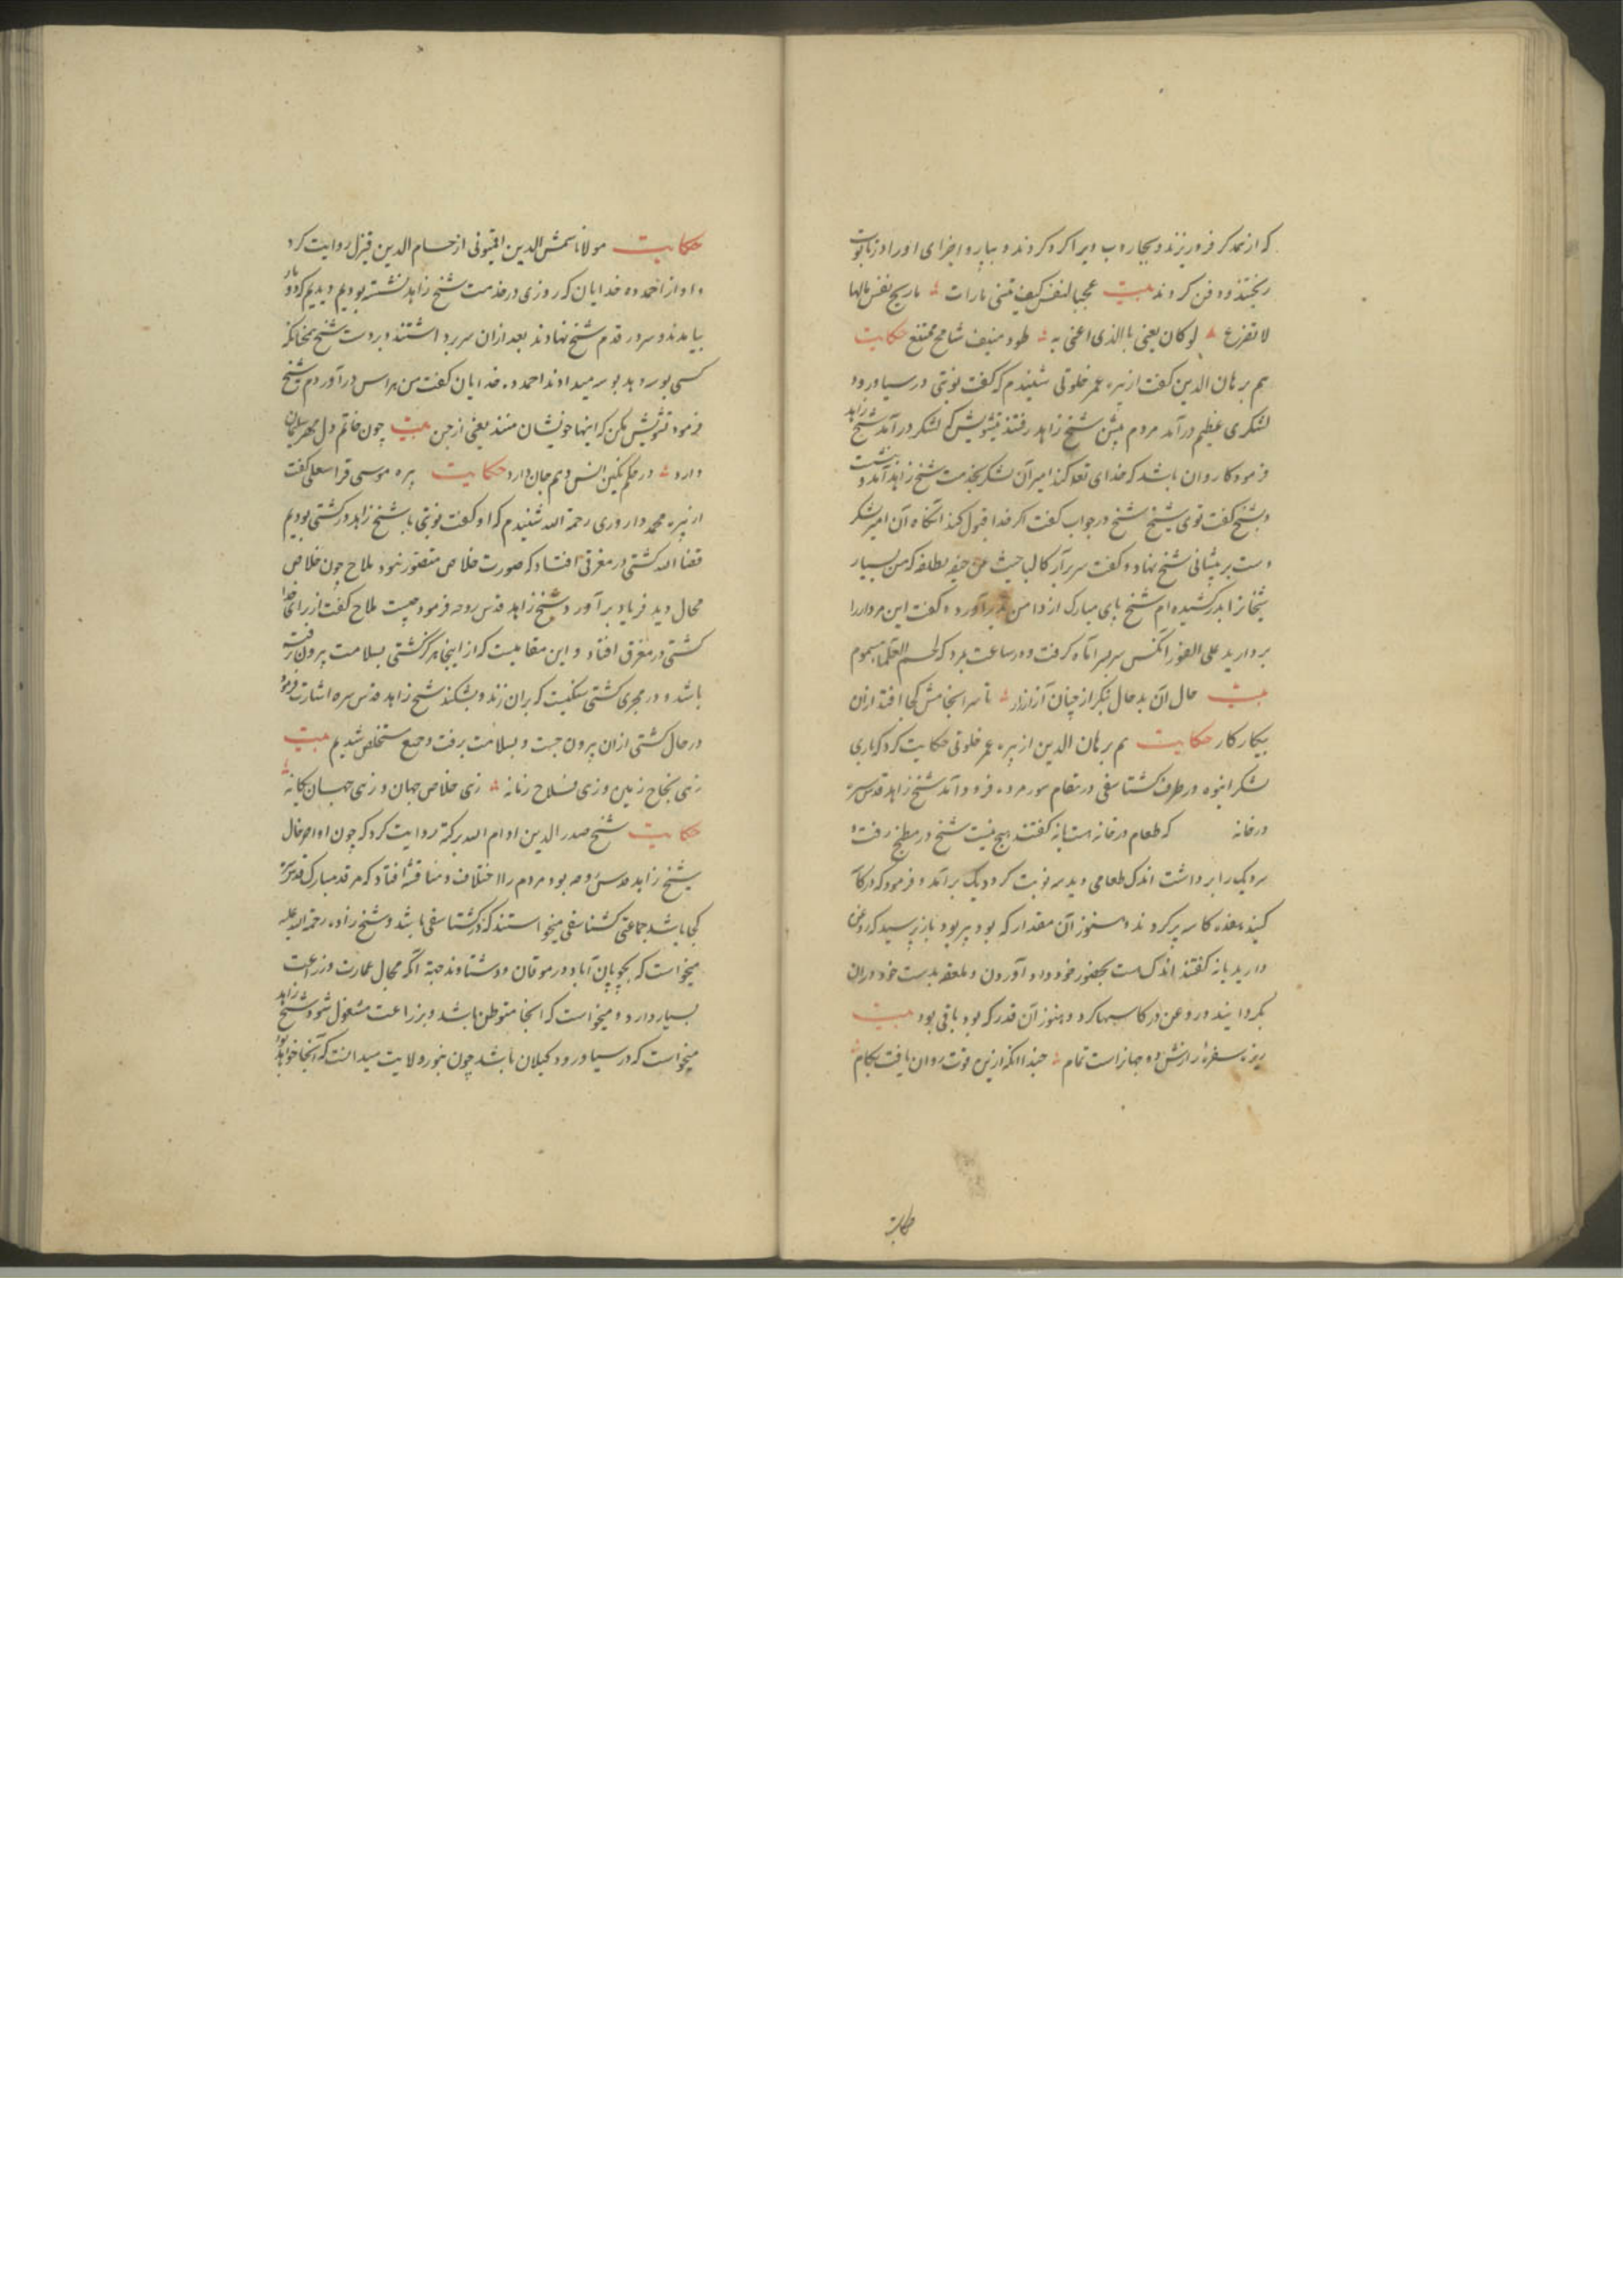 که از نمد کر فرو ریزند و بجاروب ویرا کرد کردند و بیارو اجزای اورا در تابوت
ریختند و دفن کردند بیت عجبا لنفس کیف تبنی تارات
لا تفزع لو کان یعنی بالذی اعنی به طود منیف شامخ ممتنع حکایت
هم برهان الدین کفت از پیره عمر خلوتی شنیدم که کفت نوبتی در سیاورود
لشکری عظیم درآمد مردم پیش شیخ زاهد رفتند بتشویش که لشکر درآمد شیخ زاهد
فرمود کاروان باشد که خدای تعالی کند امیر آن لشکر بخدمت شیخ زاهد آمد و بنشست
و بشیخ کفت توی شیخ شیخ در جواب کفت اکر خدا قبول کند آنکاه آن امیر لشکر
دست بر پیشانی شیخ نهاد و کفت سر برآر که من بسیار
شیخانرا بدر کشیده‌ام شیخ پای مبارک از دامن بدرآورد و کفت این مردار را
بردارید علی الفور آنکس سر برآماه کرفت و در ساعت بمرد که لحم العلماء مسموم
بیت حال آن بد حال بنکر از چنان آزار زار تا سرانجامش کجا افتد از آن
بیکار کار حکایت هم برهان الدین از پیره عمر خلوتی حکایت کرد که باری
لشکر انبوه در طرف کشتاسفی در مقام سورمرده فرود آمد شیخ زاهد قدس سره
در خانه که طعام در خانه هست یا نه کفتند هیچ نیست شیخ در مطبخ رفت و
سر دیک را برداشت اندک طعامی دید سه نوبت کرد دیک برآمد و فرمود که در کار
کنید هفده کاسه پر کردند و هنوز آن مقدار که بود پر بود باز پرسید که روغن
دارید یا نه کفتند اندک هست بحضور خود داد آوردن و ملعقه بدست خود در آن
بکردانید و روغن در کاسها کرد و هنوز آن قدر که بود باقی بود بیت
ریزه سفره رازش دو جهانراست تمام حبذا آنکه ازین قوت روان یافت بکام
حکایت
حکایت مولانا شمش الدین اقیونی از حسام الدین قیزل روایت کرد
و او از احمد ده خدایان که روزی در خدمت شیخ زاهد نشسته بودیم دیدیم که دو مار
بیامدند و سر در قدم شیخ نهادند بعد از آن سر برداشتند و بر دست شیخ همچنانکه
کسی بوسه دهد بوسه میدادند احمد ده خدایان کفت من هراس درآوردم شیخ
فرمود تشویش مکن که اینها خویشان منند یعنی از جن بیت چون خاتم دل مهر سلیمان
دارد در حکم نکین انس و هم جان دارد حکایت پیره موسی قراسعلی کفت
از پیره محمد داروری رحمة الله شنیدم که او کفت نوبتی با شیخ زاهد در کشتی بودیم
قضا الله کشتی در مغرقی افتاد که صورت خلاص متصور نبود ملاح چون خلاص
محال دید فریاد برآورد و شیخ زاهد قدس روحه فرمود چیست ملاح کفت از برای خدا
کشتی در مغرق افتاد و این مقامیست که از اینجا هرکز کشتی بسلامت بیرون رفته
باشد و در مجری کشتی سنکیست که بر آن زند و بشکند شیخ زاهد قدس سره اشارت فرمود
در حال کشتی از آن بیرون جست و بسلامت برفت و جمع مستخلص شدیم بیت
زهی نجاح زمین و زهی فلاح زمانه زهی خلاص جهان و زهی جهان یکانه
حکایت شیخ صدر الدین ادام الله برکته روایت کرد که چون اواخر حال
شیخ زاهد قدس روحه بود مردم را اختلاف و مناقشه افتاد که مرقد مبارک قدس سره
کجا باشد جماعتی کشتاسفی میخواستند که در کشتاسفی باشد و شیخ زاده رحمة الله علیه
میخواست که بچوپان آباد در موقان و دشتاوند جهة آنکه مجال عمارت و زراعت
بسیار دارد و میخواست که آنجا متوطن باشد و بزراعت مشغول شود و شیخ زاهد
میخواست که در سیاورود کیلان باشد چون بنور ولایت میدانست که آنجا خواهد بود